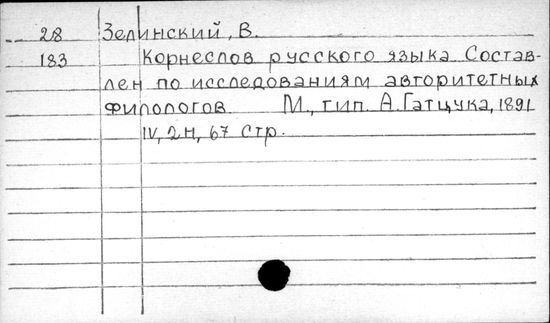 28 Зелинский, В.
183 Корнеслов русского языка Состав-
лен по исследованиям авторитетных
филологов М., тип. А. Гатцука, 1891
IV, 2н, 67 стр.